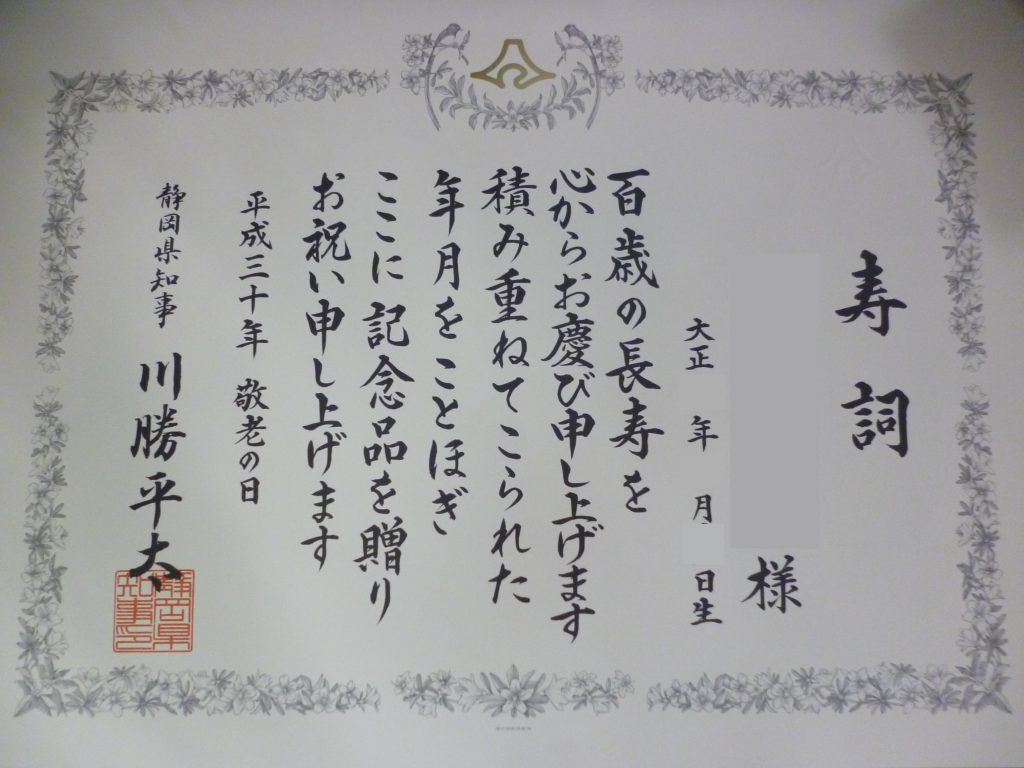 寿詞
様
大正 年 月 日生
百歳の長寿を
心からお慶び申し上げます
積み重ねてこられた
年月をことほぎ
ここに記念品を贈り
お祝い申し上げます
平成三十年 敬老の日
静岡県知事 川勝平太
静岡県
知事印